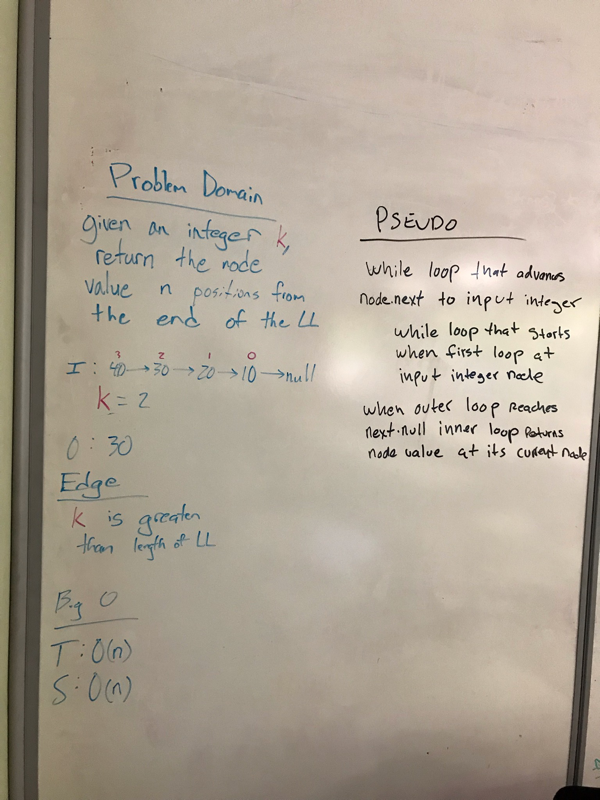 Problem Domain
given an integer k,
return the node
value n positions from
the end of the LL
3 2 1 0
I : 40→30→20→10→null
k = 2
O : 30
Edge
k is greater
than length of LL
Big O
T : O(n)
S : O(n)
PSEUDO
while loop that advances
node.next to input integer
while loop that starts
when first loop at
input integer node
when outer loop reaches
next.null inner loop returns
node value at its current node